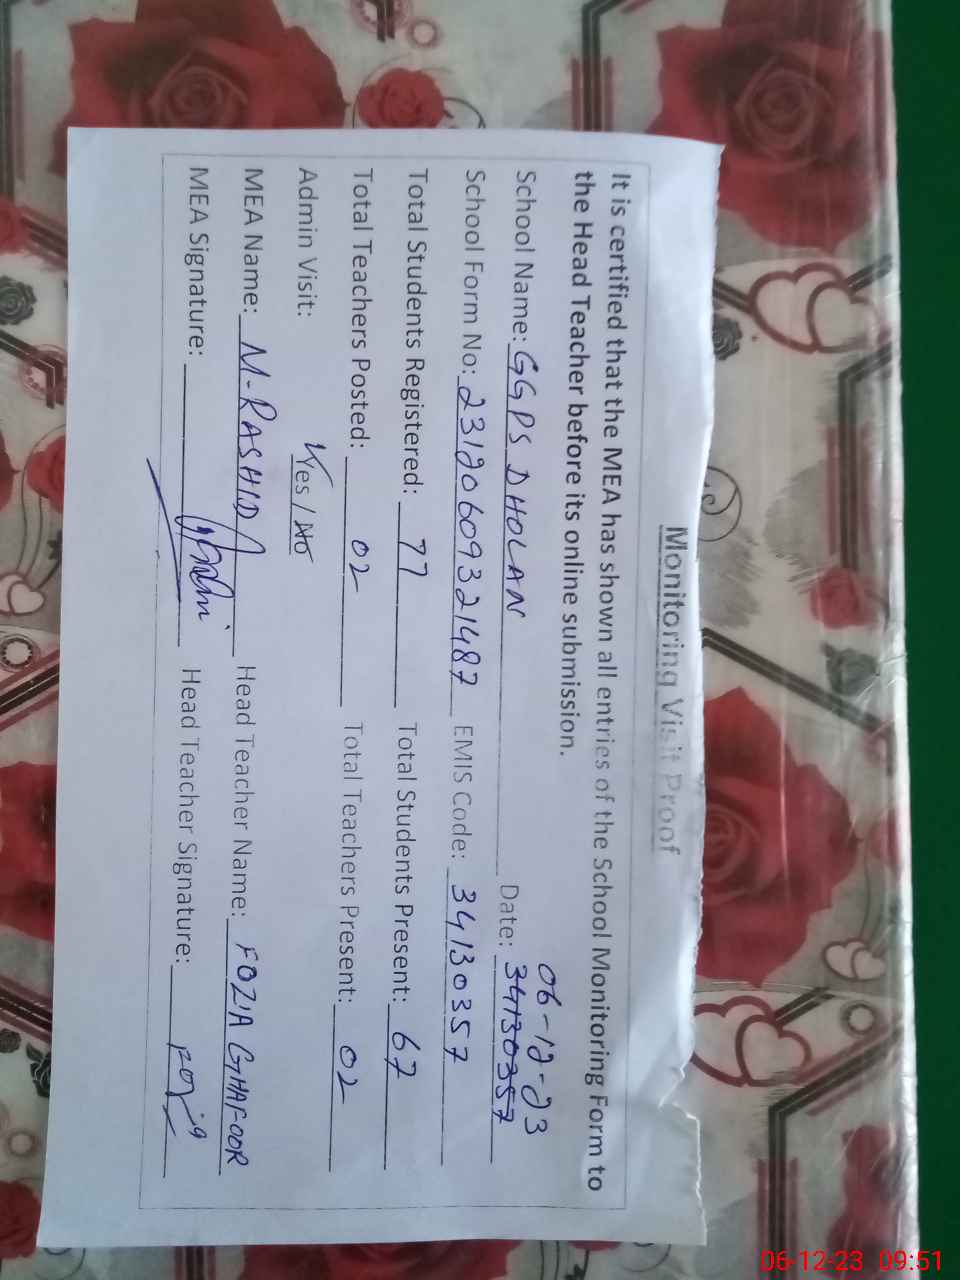 Monitoring Visit Proof
It is certified that the MEA has shown all entries of the School Monitoring Form to
the Head Teacher before its online submission.
06-12-23
School Name: GGPS DHOLAN Date: 34130357
School Form No: 23120609321487 EMIS Code: 34130357
Total Students Registered: 77 Total Students Present: 67
Total Teachers Posted: 02 Total Teachers Present: 02
Admin Visit: Yes / No
MEA Name: M-RASHID Head Teacher Name: FOZIA GHAFOOR
MEA Signature: Head Teacher Signature: Fozia
06-12-23 09:51